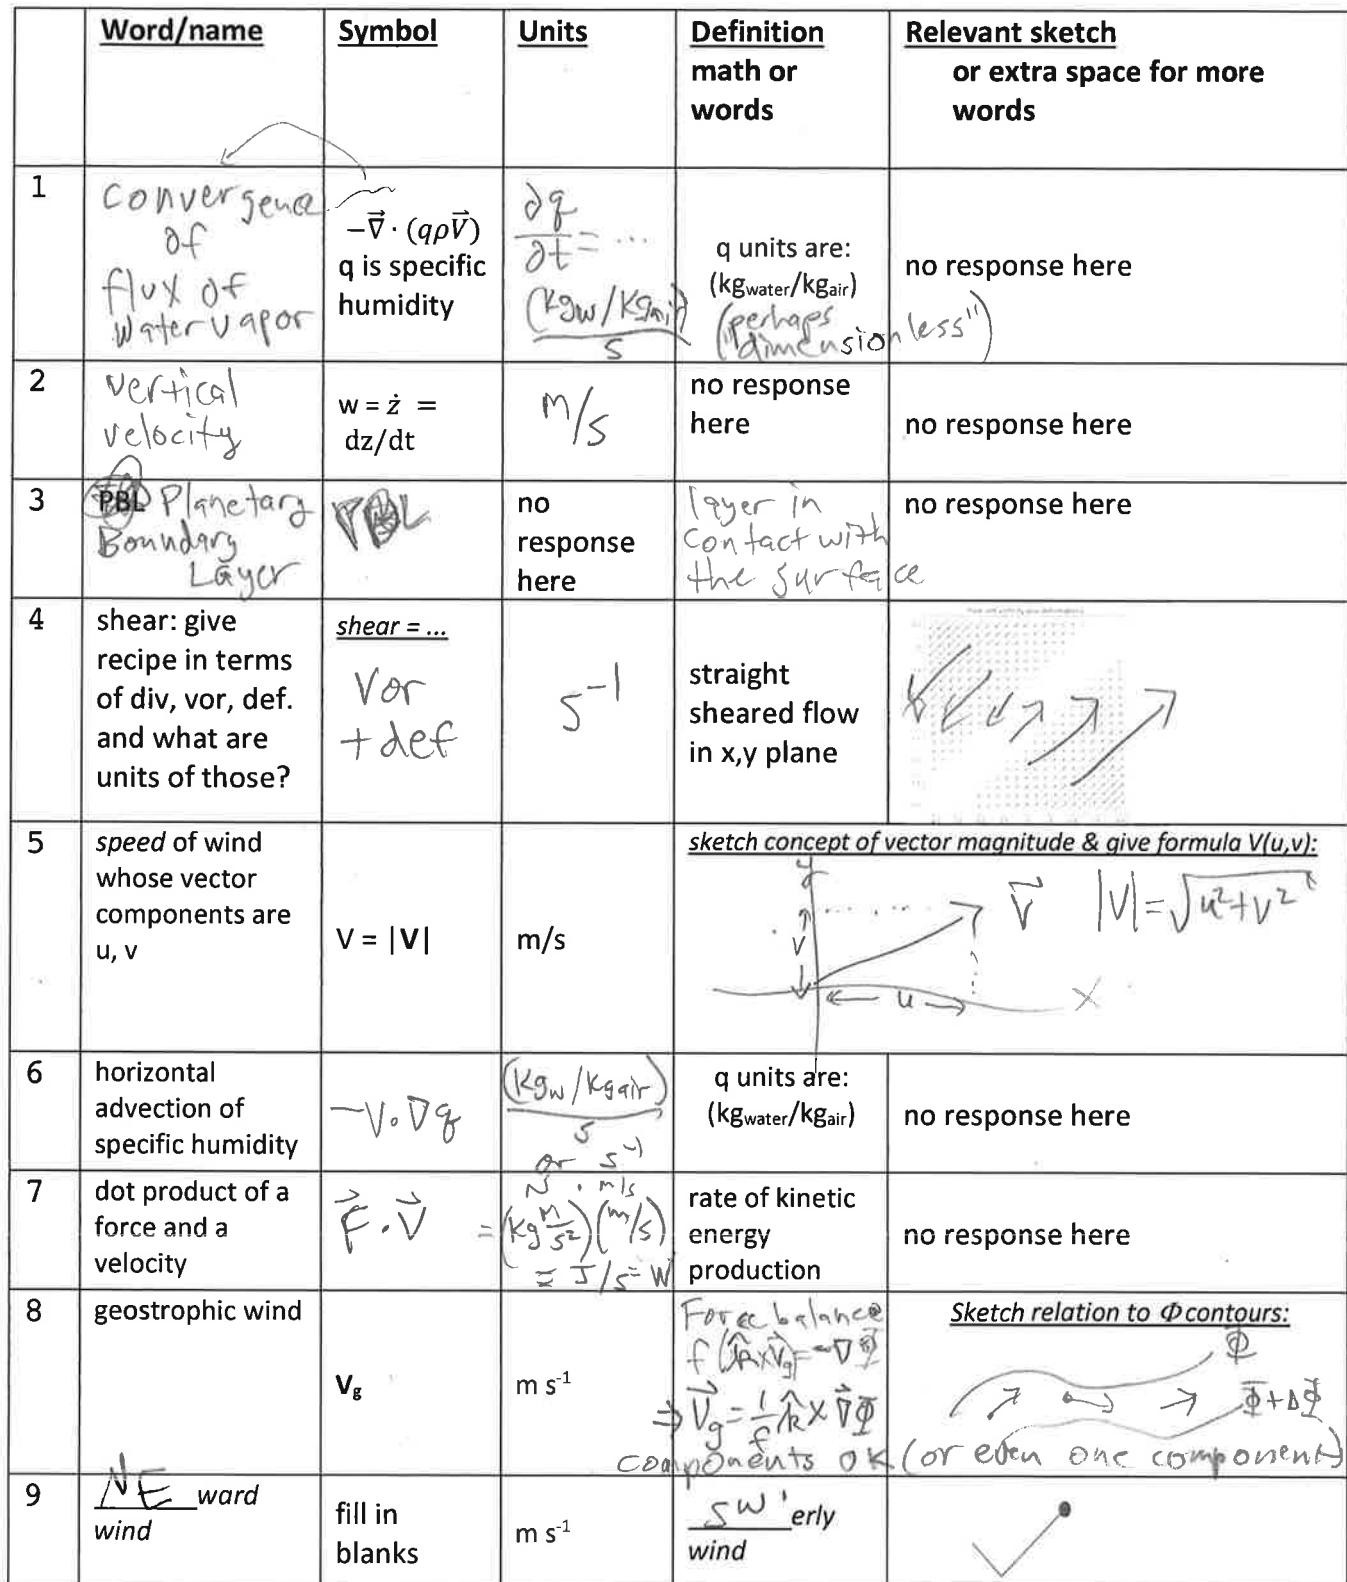 Word/name
Symbol
Units
Definition
math or
words
Relevant sketch
or extra space for more
words
1
Convergence
of
flux of
water vapor
−∇⃗ · (qρV⃗)
q is specific
humidity
∂q/∂t = ...
(kgw/kgair)/s
q units are:
(kgwater/kgair)
(perhaps
"dimensionless")
no response here
2
vertical
velocity
w = ż =
dz/dt
m/s
no response
here
no response here
3
PBL Planetary
Boundary
Layer
no
response
here
layer in
contact with
the surface
no response here
4
shear: give
recipe in terms
of div, vor, def.
and what are
units of those?
shear = ...
Vor
+ def
s⁻¹
straight
sheared flow
in x,y plane
5
speed of wind
whose vector
components are
u, v
V = |V|
m/s
sketch concept of vector magnitude & give formula V(u,v):
y
V⃗
|V| = √(u²+v²)
v
u
x
6
horizontal
advection of
specific humidity
−V·∇q
(kgw/kgair)/s
or s⁻¹
q units are:
(kgwater/kgair)
no response here
7
dot product of a
force and a
velocity
F⃗·V⃗
N · m/s
= (kg m/s²)(m/s)
= J/s = W
rate of kinetic
energy
production
no response here
8
geostrophic wind
Vg
m s⁻¹
Force balance
f(k̂×V⃗g) = −∇Φ
⇒ V⃗g = 1/f k̂ × ∇⃗Φ
components ok (or even one component)
Sketch relation to Φ contours:
Φ
Φ+ΔΦ
9
NE ward
wind
fill in
blanks
m s⁻¹
SW'erly
wind